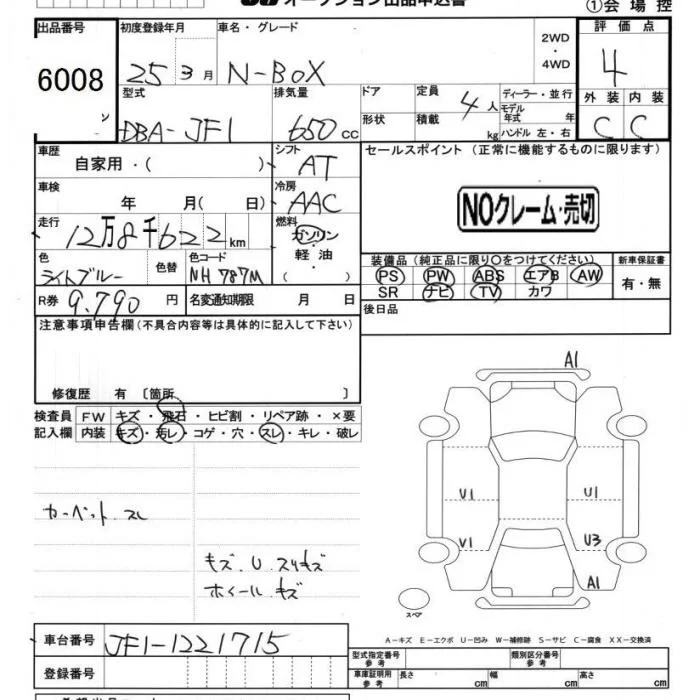 オークション出品申込書
①会場控
出品番号 初度登録年月 車名・グレード 2WD・4WD 評価点
6008 25 3月 N-BOX 4
型式 排気量 ドア 定員 ディーラー・並行 外装 内装
DBA-JF1 650cc 形状 積載 4人 kg モデル年式 年 ハンドル 左・右 C C
車歴 シフト セールスポイント（正常に機能するものに限ります）
自家用・( ) AT
車検 冷房
年 月( 日) AAC NOクレーム・売切
走行 燃料
12万8千622km ガソリン・軽油・( )
色 色替 色コード 装備品（純正品に限り○をつけてください） 新車保証書
ライトブルー NH787M PS PW ABS エアB AW 有・無
SR ナビ TV カワ
R券 9.790円 名変通知期限 月 日 後日品
注意事項申告欄（不具合内容等は具体的に記入して下さい）
修復歴 有 〔箇所 〕
検査員 FW キズ・飛石・ヒビ割・リペア跡・×要
記入欄 内装 キズ・汚レ・コゲ・穴・スレ・キレ・破レ
A1
U1 U1
V1 U3
A1
カーペット スレ
キズ.U.スリキズ
ホイールキズ
スペア
A－キズ E－エクボ U－凹み W－補修跡 S－サビ C－腐食 XX－交換済
車台番号 JF1-1221715
型式指定番号 参考 類別区分番号 参考
登録番号 車庫証明用 参考 長さ cm 幅 cm 高さ cm